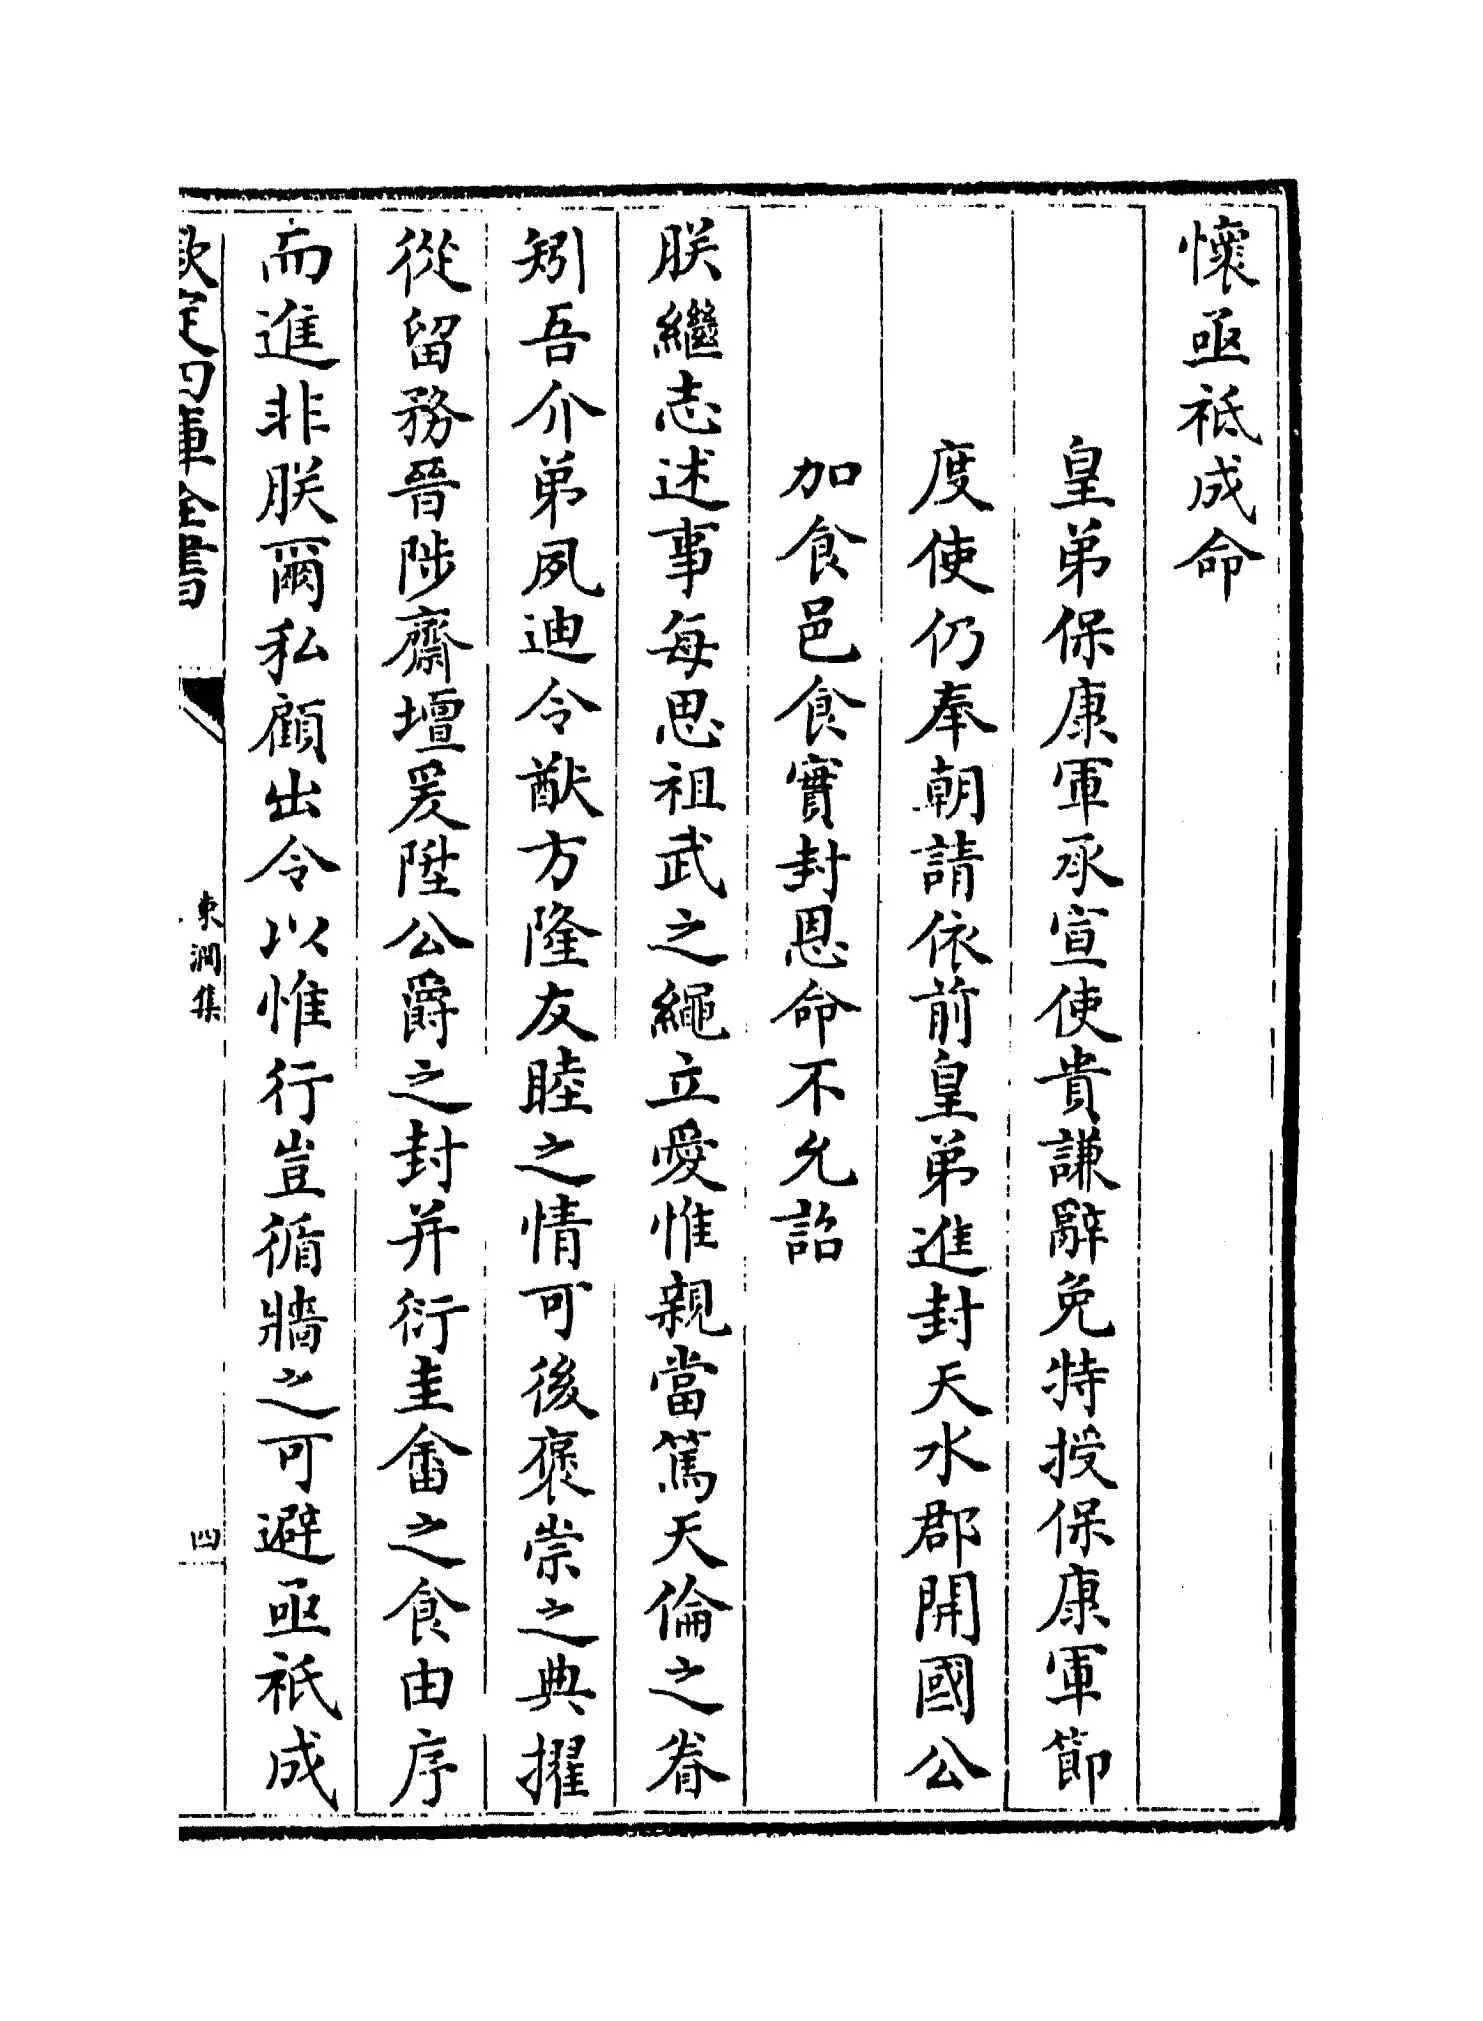 懷亟祗成命
皇弟保康軍承宣使貴謙辭免特授保康軍節
度使仍奉朝請依前皇弟進封天水郡開國公
加食邑食實封恩命不允詔
朕繼志述事每思祖武之繩立愛惟親當篤天倫之眷
矧吾介弟夙迪令猷方隆友睦之情可後褒崇之典擢
從留務晉陟齋壇爰陞公爵之封并衍圭畬之食由序
而進非朕爾私顧出令以惟行豈循牆之可避亟祇成
欽定四庫全書
東澗集
四